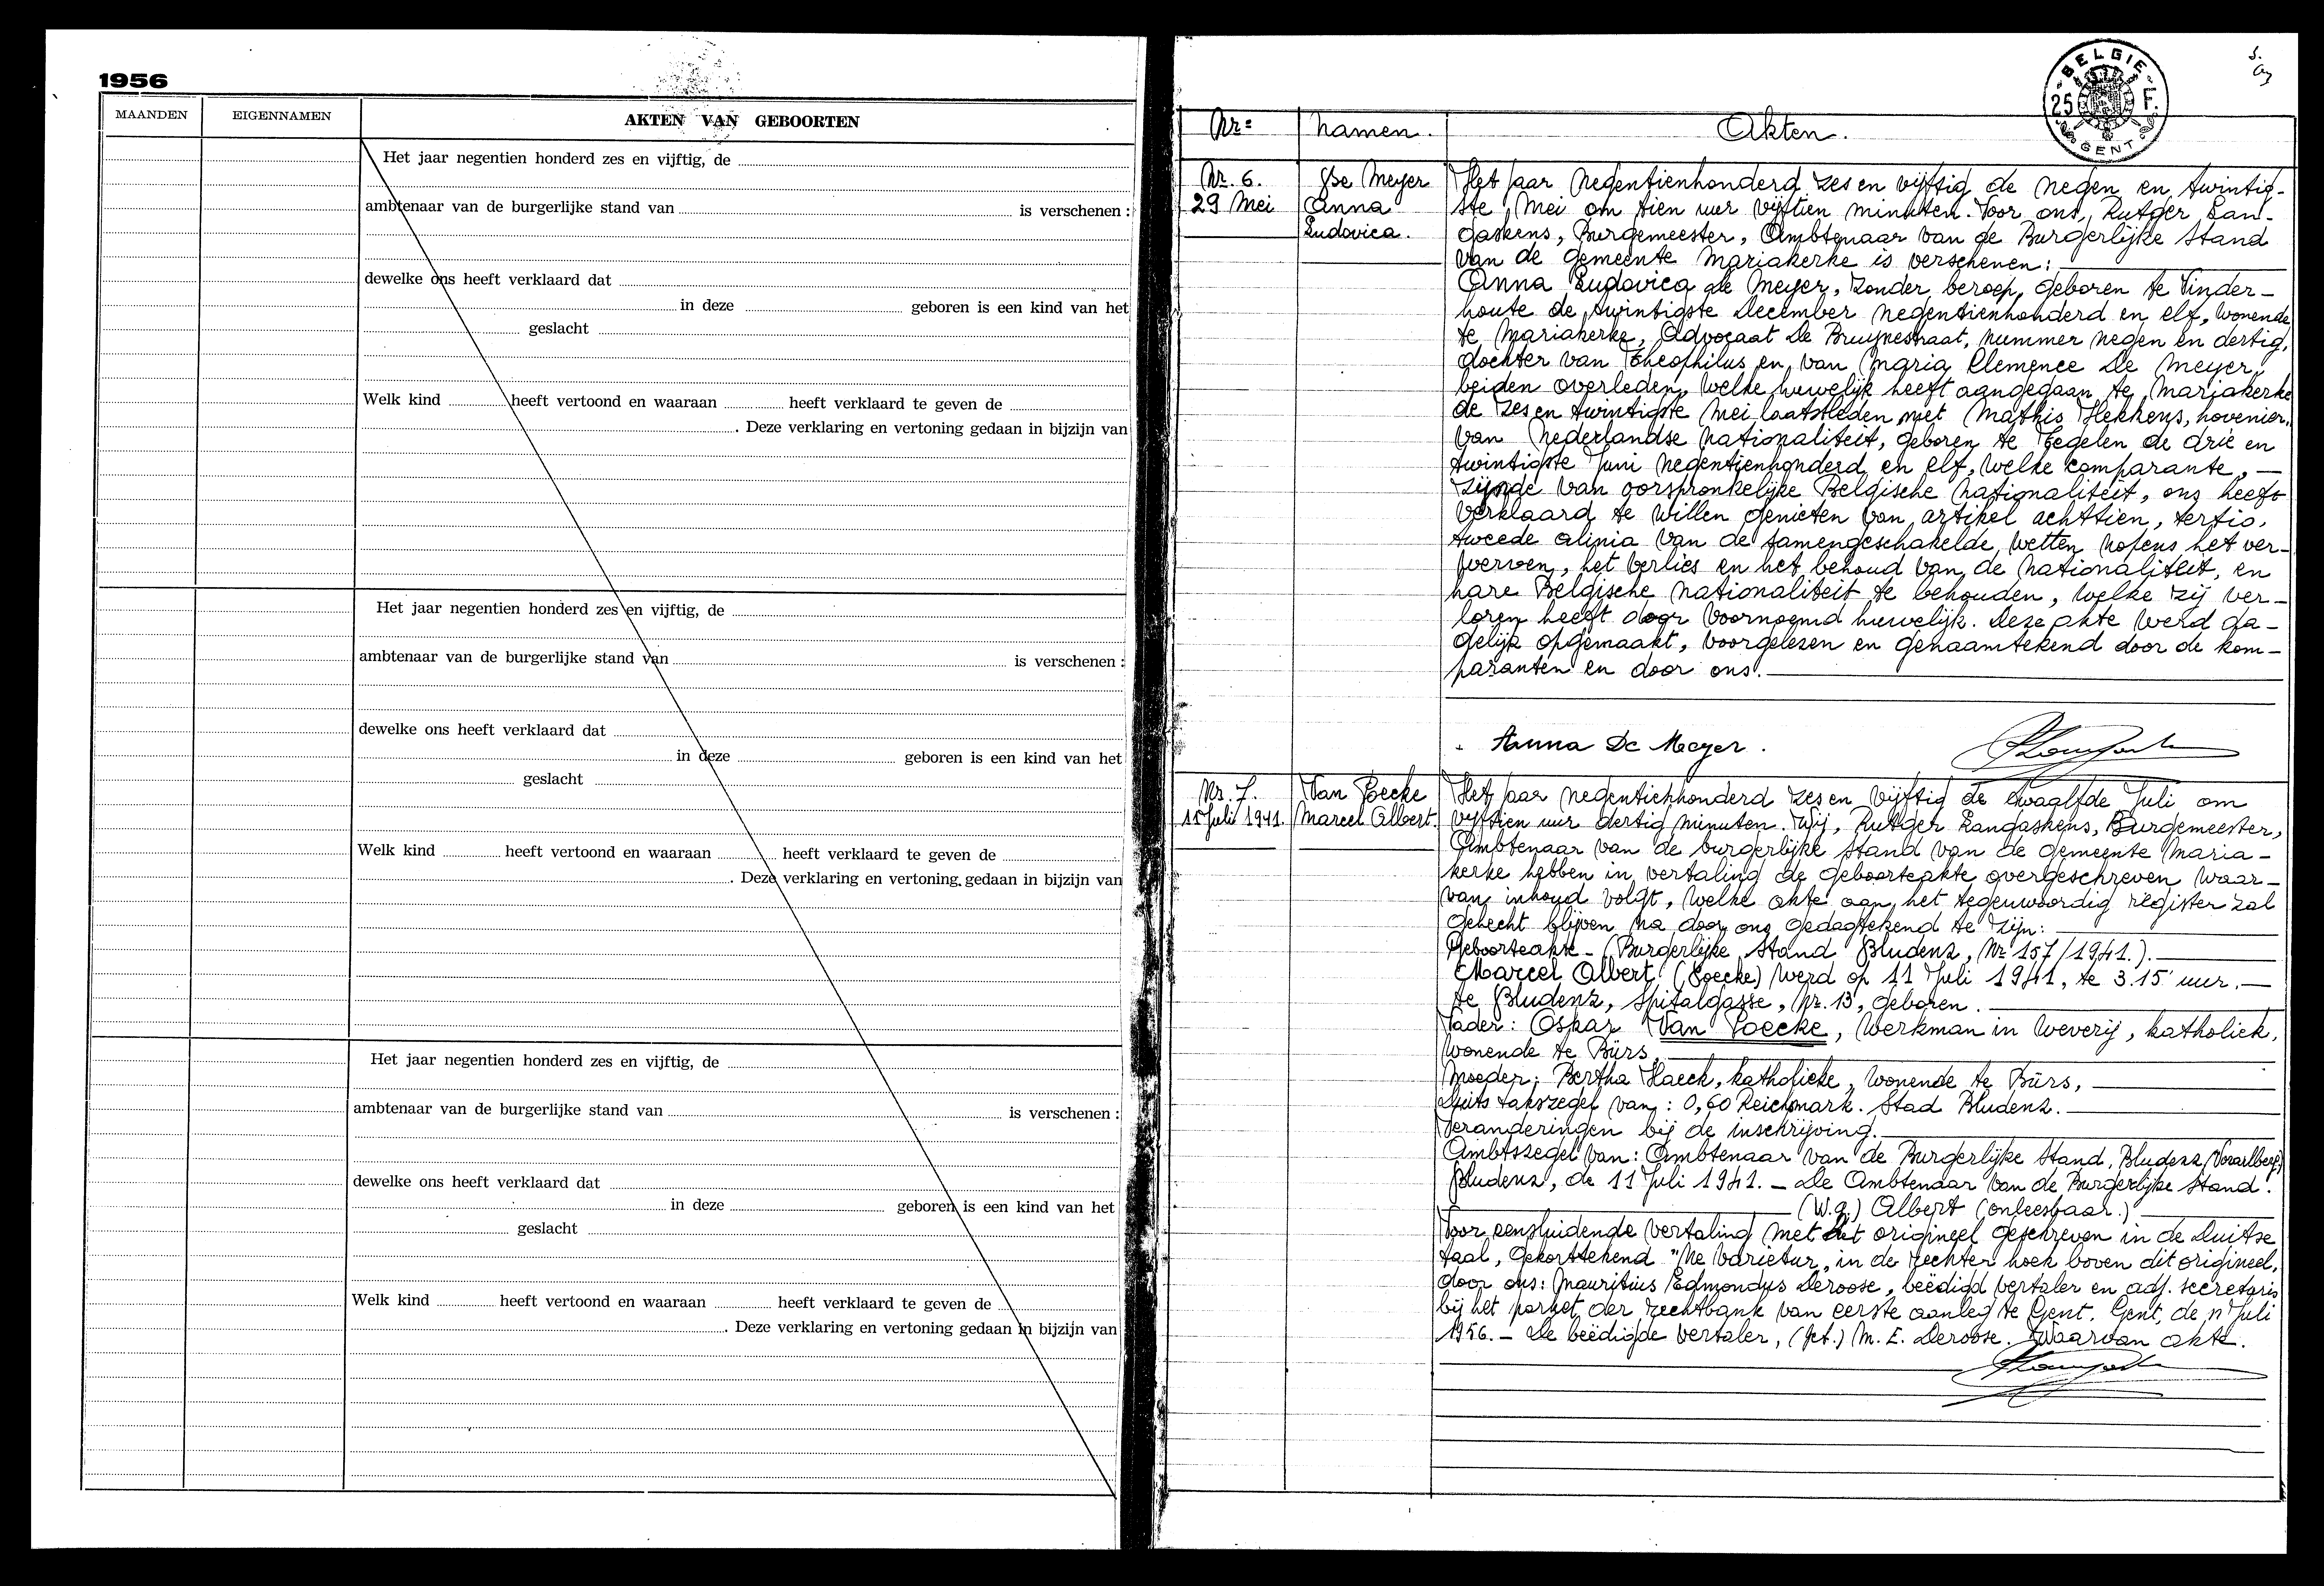 1956
MAANDEN
EIGENNAMEN
AKTEN VAN GEBOORTEN
Het jaar negentien honderd zes en vijftig, de
ambtenaar van de burgerlijke stand van is verschenen :
dewelke ons heeft verklaard dat
in deze geboren is een kind van het
geslacht
Welk kind heeft vertoond en waaraan heeft verklaard te geven de
. Deze verklaring en vertoning gedaan in bijzijn van
Het jaar negentien honderd zes en vijftig, de
ambtenaar van de burgerlijke stand van is verschenen :
dewelke ons heeft verklaard dat
in deze geboren is een kind van het
geslacht
Welk kind heeft vertoond en waaraan heeft verklaard te geven de
. Deze verklaring en vertoning gedaan in bijzijn van
Het jaar negentien honderd zes en vijftig, de
ambtenaar van de burgerlijke stand van is verschenen :
dewelke ons heeft verklaard dat
in deze geboren is een kind van het
geslacht
Welk kind heeft vertoond en waaraan heeft verklaard te geven de
. Deze verklaring en vertoning gedaan in bijzijn van
BELGIE
25 F.
GENT
Nr=
Namen.
Akten.
Nr. 6.
29 Mei
De Meyer
Anna
Ludovica.
Het jaar negentienhonderd zes en vijftig de negen en twintig-
ste Mei om tien uur vijftien minuten. Voor ons, Rutger Lan-
gaskens, Burgemeester, Ambtenaar van de Burgerlijke Stand
van de gemeente Mariakerke is verschenen:
Anna Ludovica de Meyer, zonder beroep, geboren te Vinder-
houte de twintigste December negentienhonderd en elf, wonende
te Mariakerke, Advocaat De Bruynestraat, nummer negen en dertig,
dochter van Theophilus en van Maria Clemence De Meyer,
beiden overleden, welke huwelijk heeft aangegaan te Mariakerke
de zes en twintigste Mei laatstleden met Mathis Hekkens, hovenier,
van Nederlandse nationaliteit, geboren te Tegelen de drie en
twintigste Juni negentienhonderd en elf, welke comparante, —
zijnde van oorspronkelijke Belgische nationaliteit, ons heeft
verklaard te willen genieten van artikel achttien, tertio,
tweede alinia van de samengeschakelde wetten nopens het ver-
werven, het verlies en het behoud van de nationaliteit, en
hare Belgische nationaliteit te behouden, welke zij ver-
loren heeft door voornoemd huwelijk. Deze akte werd da-
gelijk opgemaakt, voorgelesen en genaamtekend door de kom-
paranten en door ons.
Anna De Meyer.
Nr. 7.
11 Juli 1941.
Van Poecke
Marcel Albert.
Het jaar negentienhonderd zes en vijftig de twaalfde Juli om
vijftien uur dertig minuten. Wij, Rutger Langaskens, Burgemeester,
Ambtenaar van de burgerlijke stand van de gemeente Maria-
kerke hebben in vertaling de geboorteakte overgeschreven waar-
van inhoud volgt, welke akte aan het tegenwoordig register zal
gehecht blijven na door ons gedagtekend te zijn:
Geboorteakte - (Burgerlijke Stand Bludenz, Nr 157/1941.).
Marcel Albert (Poecke) werd op 11 Juli 1941, te 3.15 uur. —
te Bludenz, Spitalgasse, Nr. 13, geboren.
Vader: Oskar Van Poecke, werkman in weverij, katholiek,
wonende te Bürs,
Moeder: Bertha Haeck, katholieke, wonende te Bürs,
Duits takszegel van: 0,60 Reichsmark. Stad Bludenz.
Veranderingen bij de inschrijving.
Ambtszegel van: Ambtenaar van de Burgerlijke Stand, Bludenz (Vorarlberg)
Bludenz, de 11 Juli 1941. — De Ambtenaar van de Burgerlijke Stand.
(W.g.) Albert (onleesbaar.)
Voor eensluidende vertaling met het origineel geschreven in de Duitse
taal, gekorttekend "Ne Varietur, in de rechter hoek boven dit origineel,
door ons: Mauritius Edmondus Deroose, beëdigd vertaler en adj. secretaris
bij het parket der rechtbank van eerste aanleg te Gent. Gent, de 11 Juli
1956. — De beëdigde vertaler, (get.) M. E. Deroose. Waarvan akte.